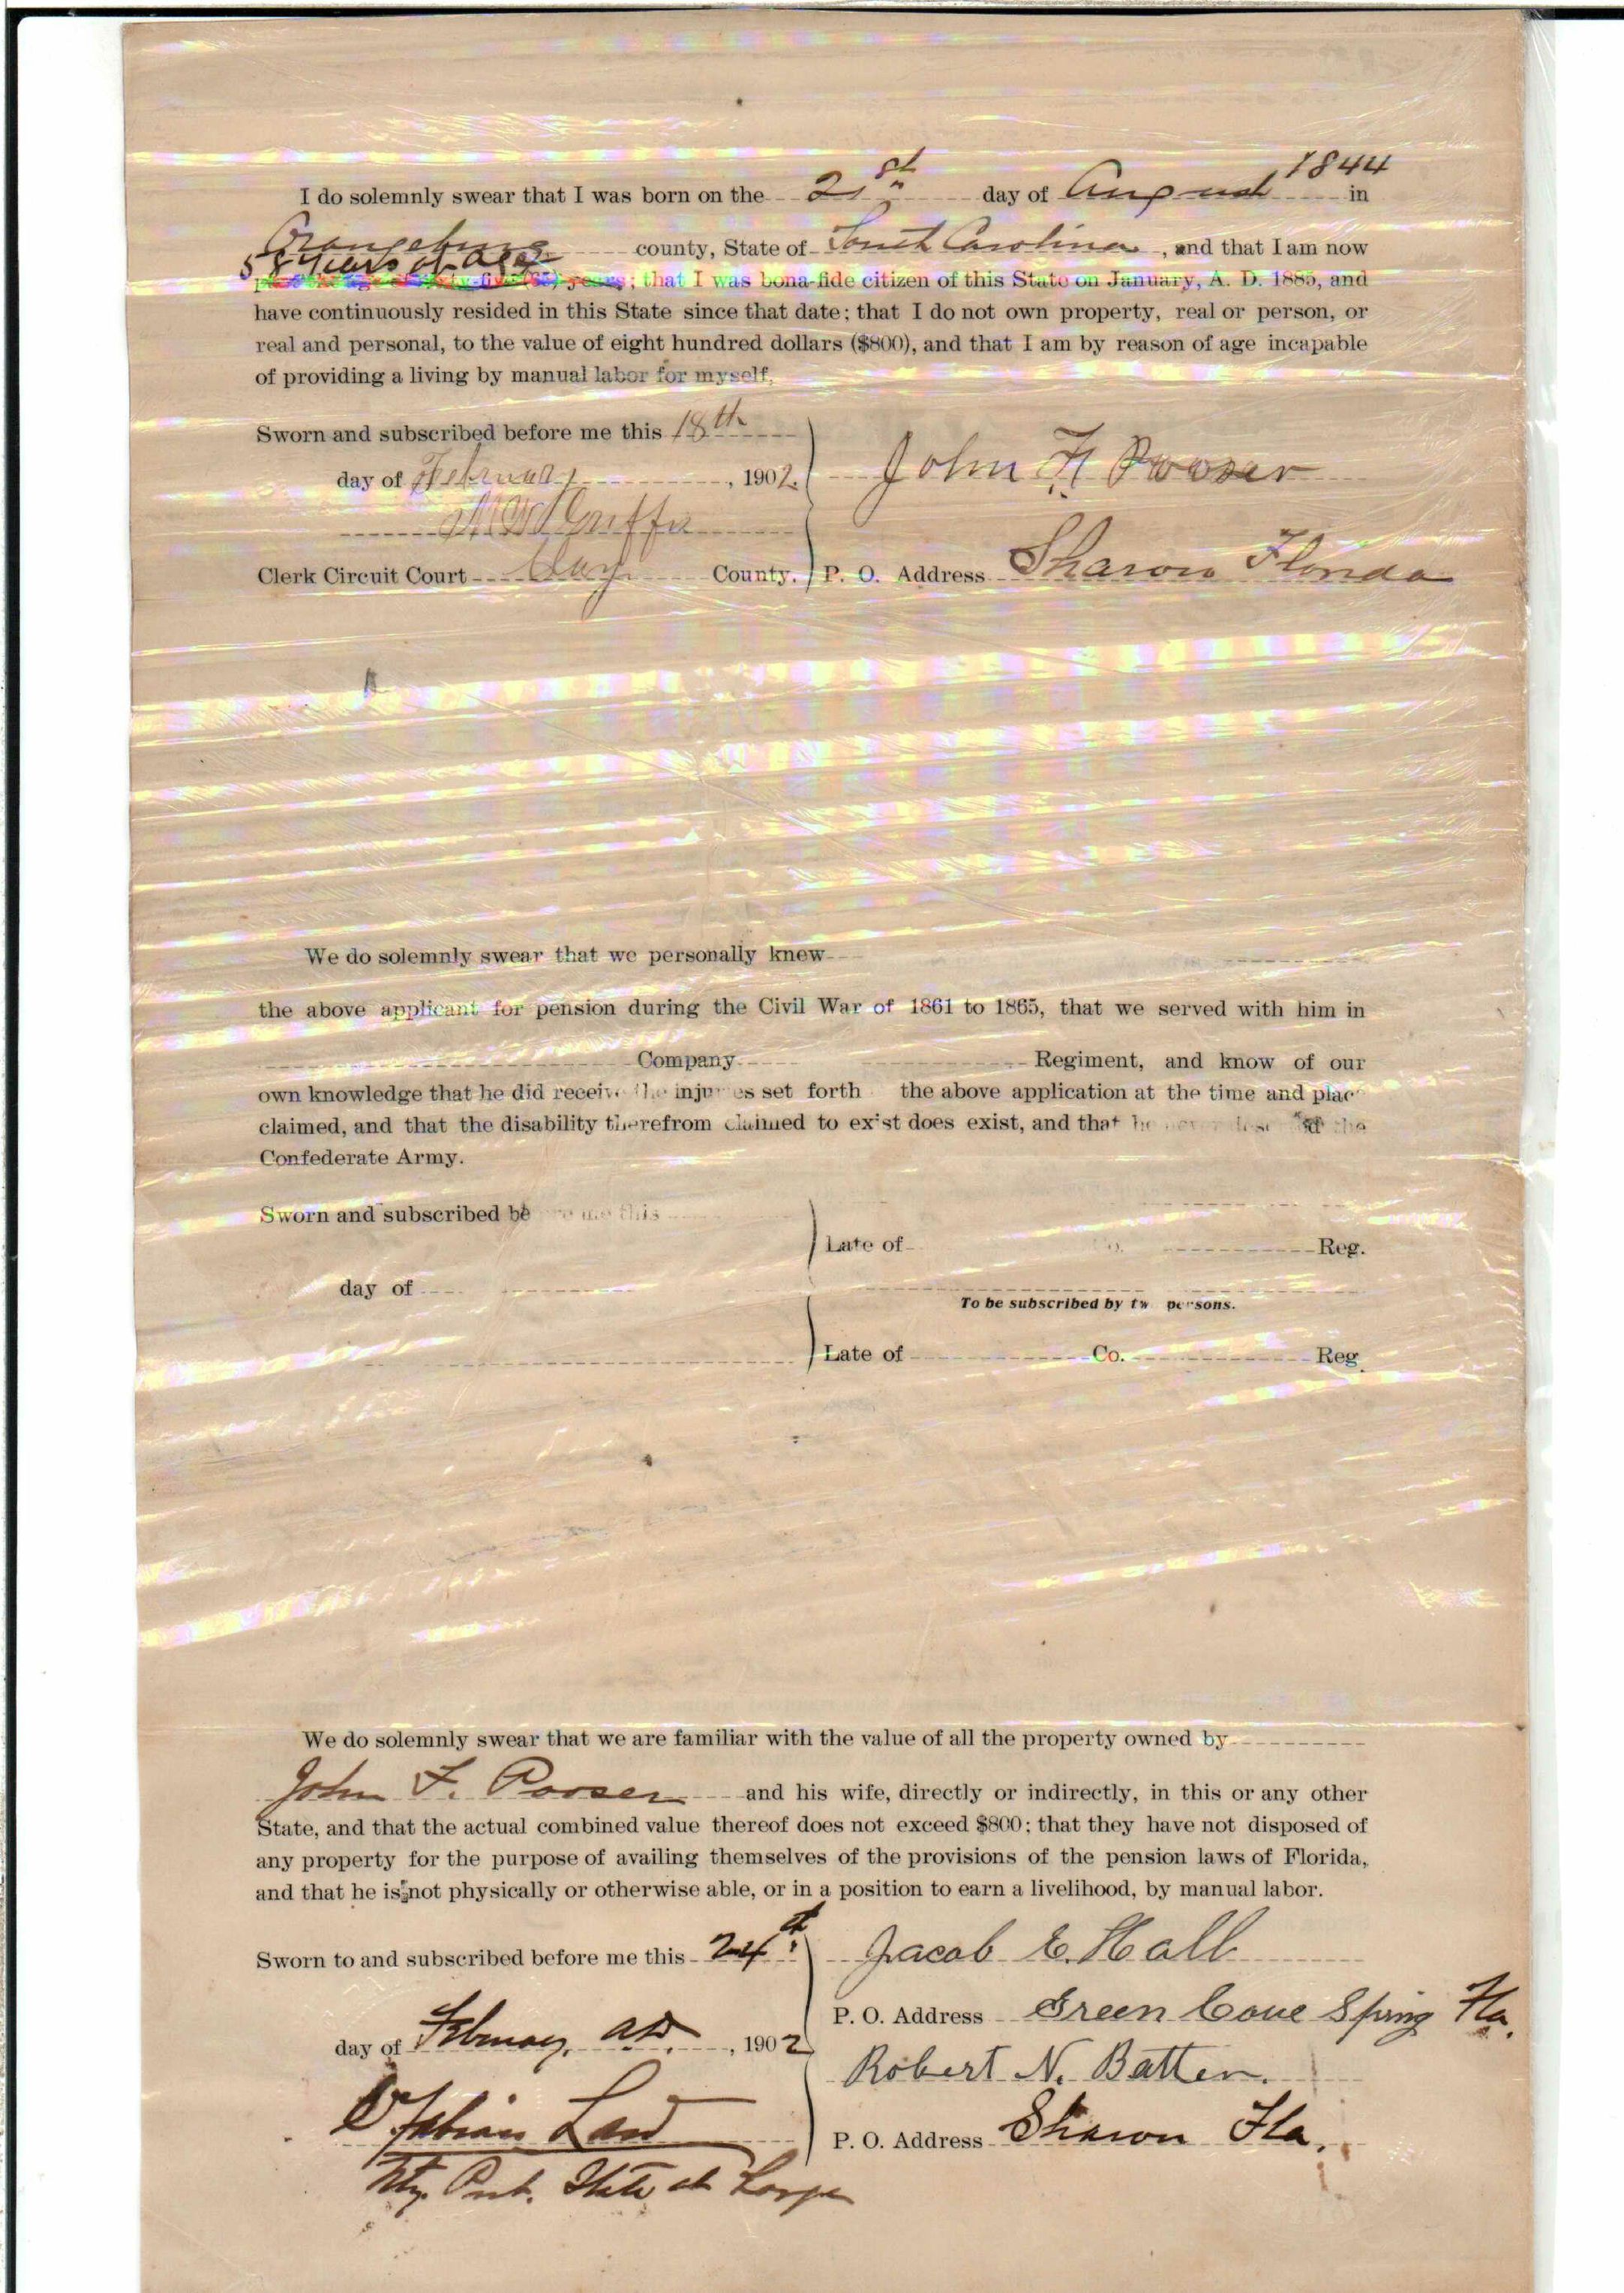 I do solemnly swear that I was born on the 21st day of August 1844 in
Orangeburg county, State of South Carolina, and that I am now
58 years of age
years; that I was bona-fide citizen of this State on January, A. D. 1885, and
have continuously resided in this State since that date; that I do not own property, real or person, or
real and personal, to the value of eight hundred dollars ($800), and that I am by reason of age incapable
of providing a living by manual labor for myself.
Sworn and subscribed before me this 18th
day of February, 1902. John F Pooser
Clerk Circuit Court Clay County. P. O. Address Sharon Florida
We do solemnly swear that we personally knew
the above applicant for pension during the Civil War of 1861 to 1865, that we served with him in
Company Regiment, and know of our
own knowledge that he did receive the injuries set forth the above application at the time and plac
claimed, and that the disability therefrom claimed to exist does exist, and that he never the
Confederate Army.
Sworn and subscribed be re me this
Late of Reg.
day of
To be subscribed by tw persons.
Late of Co. Reg.
We do solemnly swear that we are familiar with the value of all the property owned by
John F. Pooser and his wife, directly or indirectly, in this or any other
State, and that the actual combined value thereof does not exceed $800; that they have not disposed of
any property for the purpose of availing themselves of the provisions of the pension laws of Florida,
and that he is not physically or otherwise able, or in a position to earn a livelihood, by manual labor.
Sworn to and subscribed before me this 24th Jacob E. Hall
P. O. Address Green Cove Spring Fla.
day of February, A.D., 1902
Robert N. Batten.
P. O. Address Sharon Fla.
Nty. Pub. State at Large